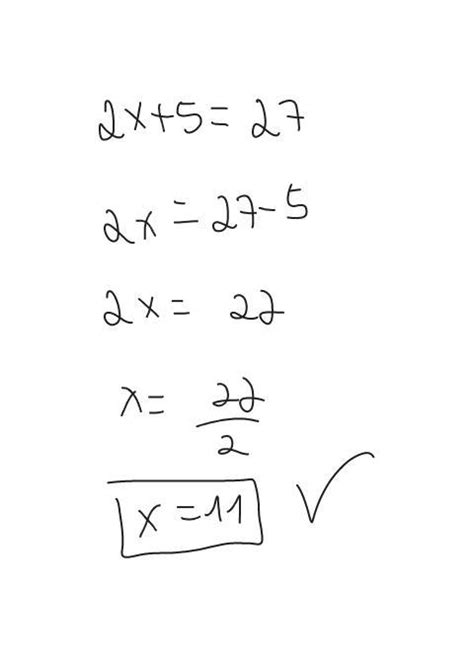 2x+5= 27
2x = 27-5
2x = 22
x= 22/2
x =11 ✓